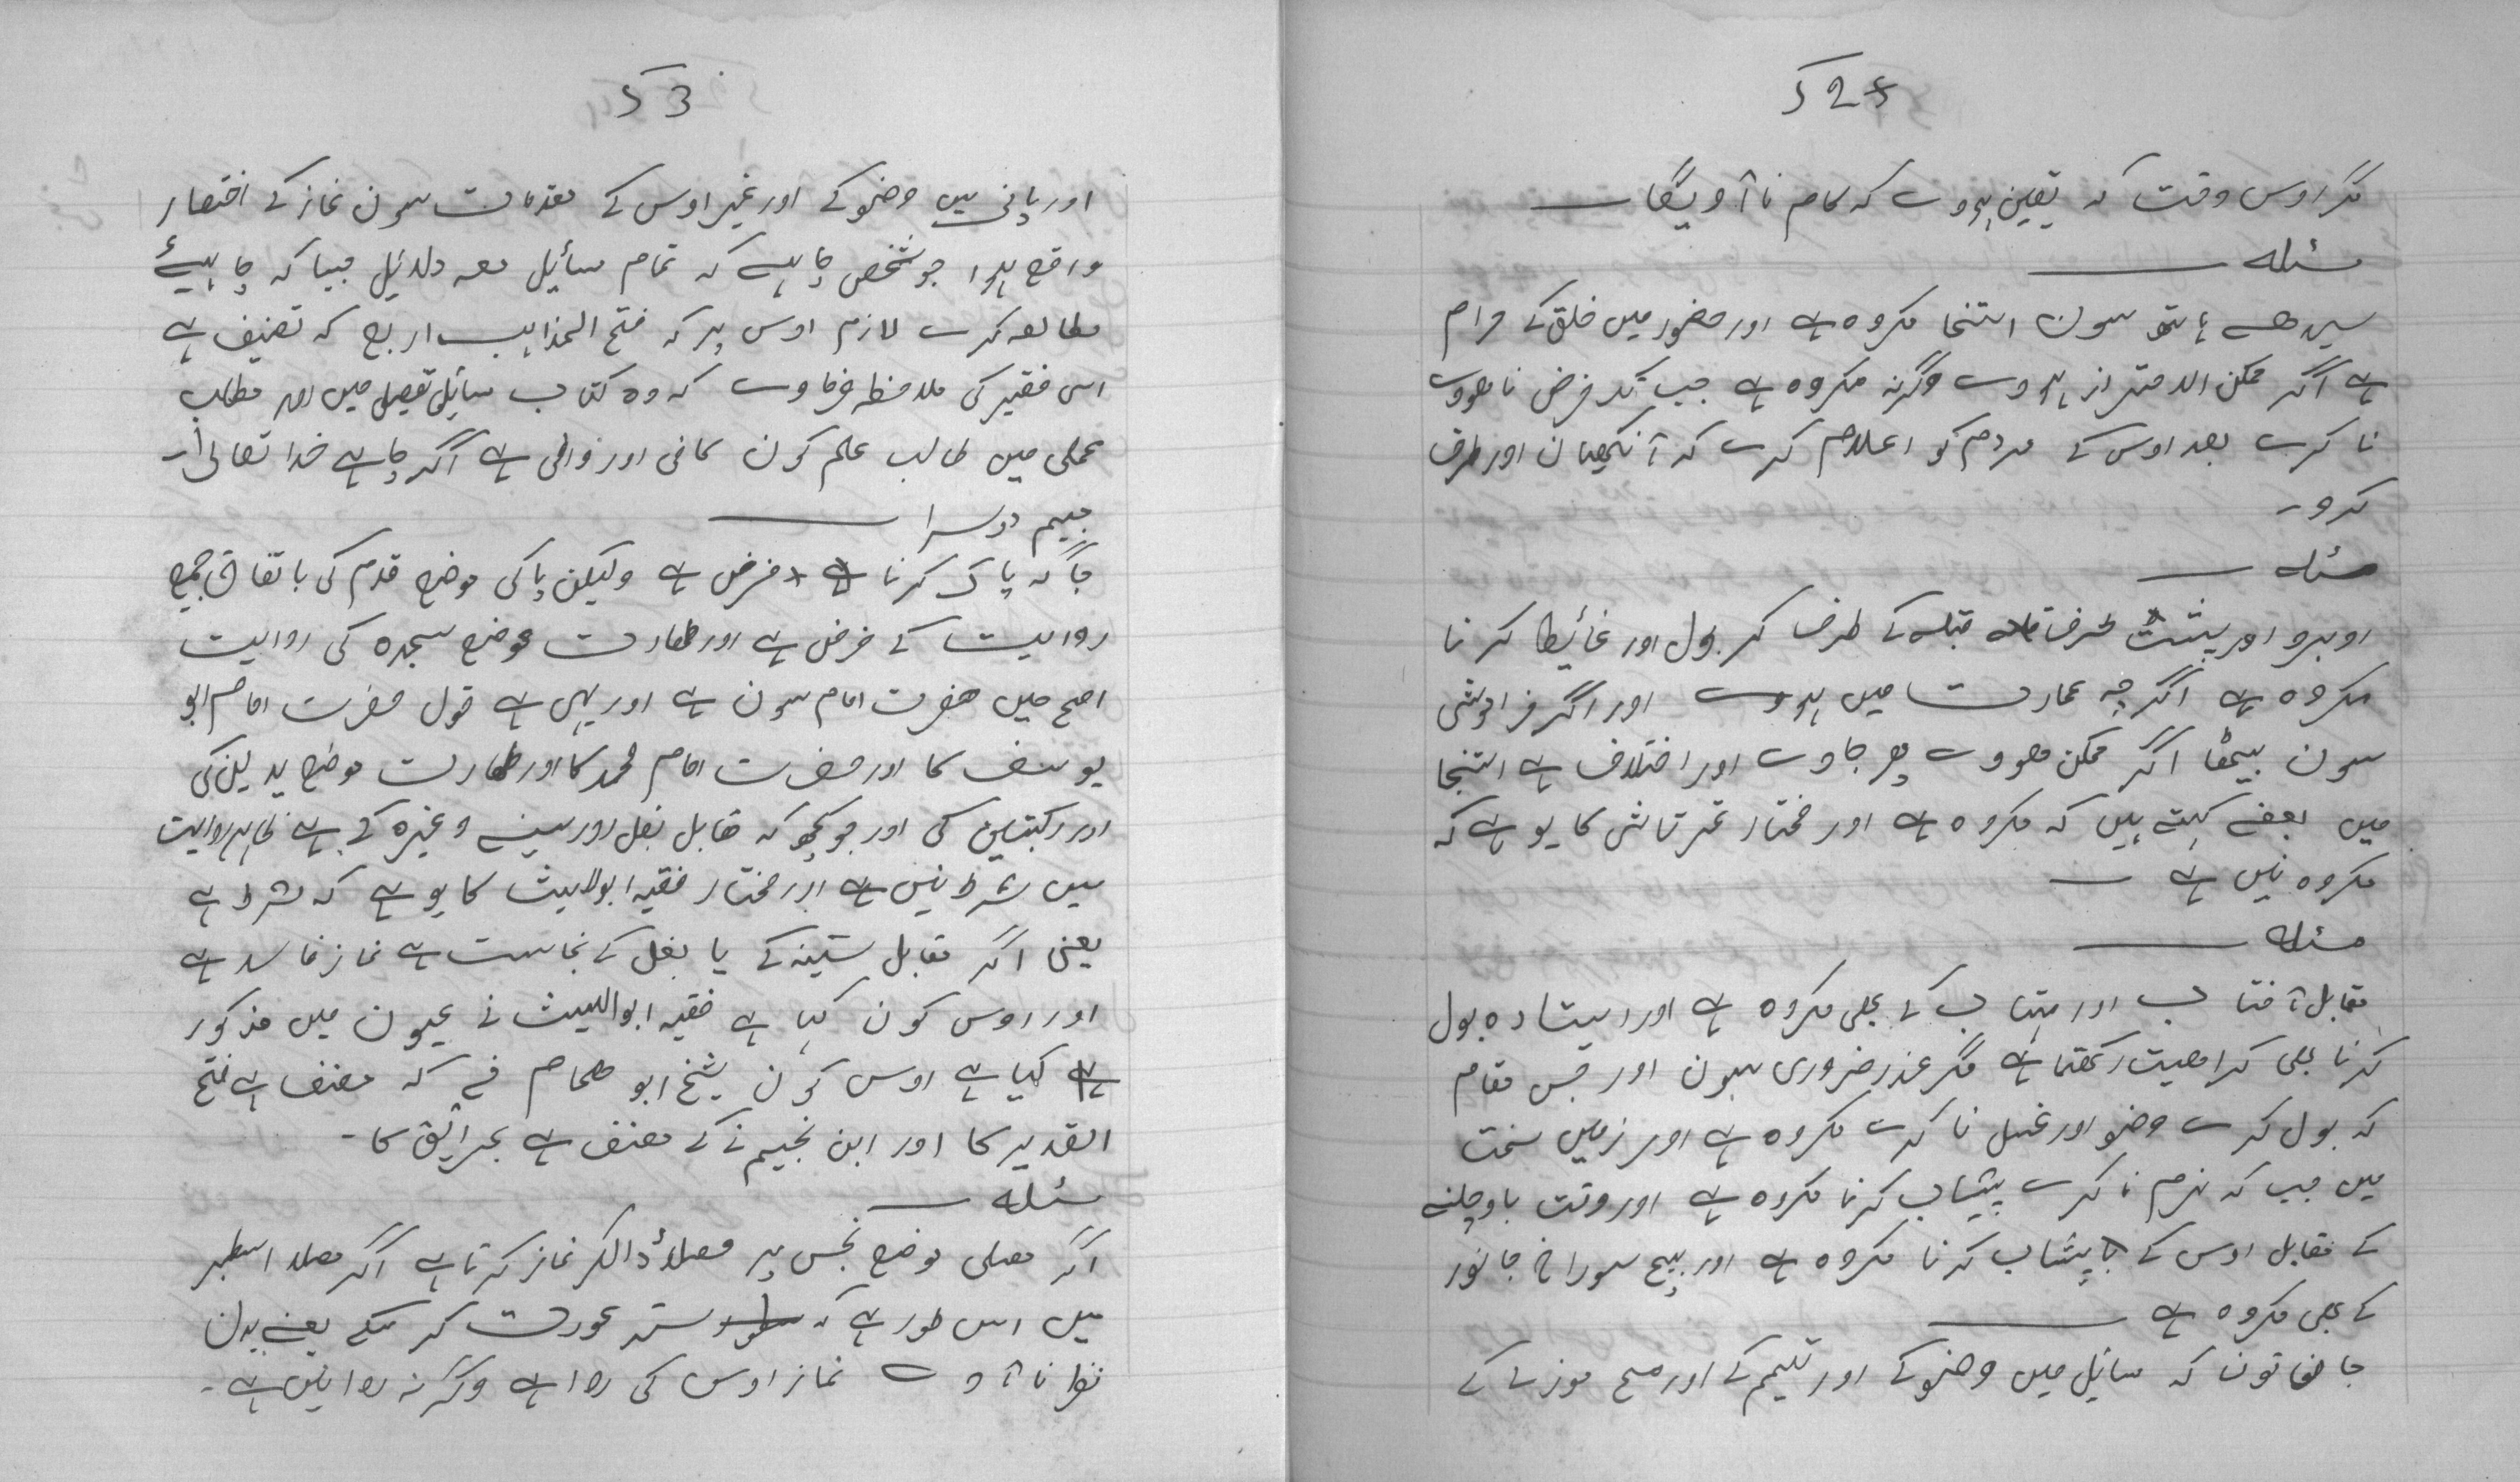 2 ک
مگر اوس وقت کہ یقین ہووے کہ کام نا آویگا ۔
مسئلہ
سیدھے ہاتھ سون استنجا مکروہ ہے اور حضور میں خلق کے حرام
ہے اگر ممکن الاحتراز ہووے وگرنہ مکروہ ہے جب تک فرض نا ھووے
نا کرے بعد اوس کے مردم کو اعلام کرے کہ آنکھیان اور طرف
کرو ۔
مسئلہ
روبرو اور پشت طرف قبلہ کے طرف کر بول اور غائیط کرنا
مکروہ ہے اگرچہ عمارت میں ہووے اور اگر فراموشی
سون بیٹھا اگر ممکن ھووے پھر جاوے اور اختلاف ہے استنجا
میں بعضے کہتے ہیں کہ مکروہ ہے اور مختار تمرتاشی کا یو ہے کہ
مکروہ نیں ہے ۔
مسئلہ
مقابل آفتاب اور مہتاب کے بھی مکروہ ہے اور ایستادہ بول
کرنا بھی کراھیت رکھتا ہے مگر عذر ضروری سون اور جس مقام
کہ بول کرے وضو اور غسل نا کرے مکروہ ہے اور زمین سخت
میں جب کہ نرم نا کرے پیشاب کرنا مکروہ ہے اور وقت باو چلنے
کے مقابل اوس کے پیشاب کرنا مکروہ ہے اور بیچ سوراخ جانور
کے بھی مکروہ ہے
جانو تون کہ سائیل میں وضو کے اور تیمم کے اور مسح موزے کے
3 ک
اور پانی میں وضو کے اور غیر اوس کے مقدمات سون نماز کے اختصار
واقع ہوا جو شخص چاہے کہ تمام مسائیل معہ دلائیل جیسا کہ چاہیئے
مطالعہ کرے لازم اوس پر کہ فتح المذاہب اربع کہ تصنیف ہے
اس فقیر کی ملاحظہ فرماوے کہ وہ کتاب مسائیل تفصیلی میں اور مطالب
عملی میں طالب علم کون کافی اور وافی ہے اگر چاہے خدا تعالیٰ ۔
جیم دوسرا
جاگہ پاک کرنا فرض ہے ولیکن پاکی موضع قدم کی باتفاق جمیع
روایت کے فرض ہے اور طھارت موضع سجدہ کی روایت
اصح میں حضرت امام سون ہے اور یہی ہے قول حضرت امام ابو
یوسف کا اور حضرت امام محمد کا اور طھارت موضع یدین کی
اور رکبتین کی اور جو کچھ کہ مقابل بغل اور سینے وغیرہ کے ہے ظاہر روایت
میں شرط نیں ہے اور مختار فقیہ ابولایث کا یو ہے کہ شرط ہے
یعنی اگر مقابل سینہ کے یا بغل کے نجاست ہے نماز فاسد ہے
اور اوس کون کہا ہے فقیہ ابواللیث نے عیون میں مذکور
ہے کہا ہے اوس کون شیخ ابو ھمام نے کہ مصنف ہے فتح
القدیر کا اور ابن نجیم نے کے مصنف ہے بحرائیق کا ۔
مسئلہ
اگر مصلی موضع نجس پر مصلا ڈالکر نماز کرتا ہے اگر مصلا اسطبر
میں اس طور ہے کہ ستر عورت کر سکے یعنے بدن
نظر نا آوے نماز اوس کی روا ہے وگرنہ روا نیں ہے ۔